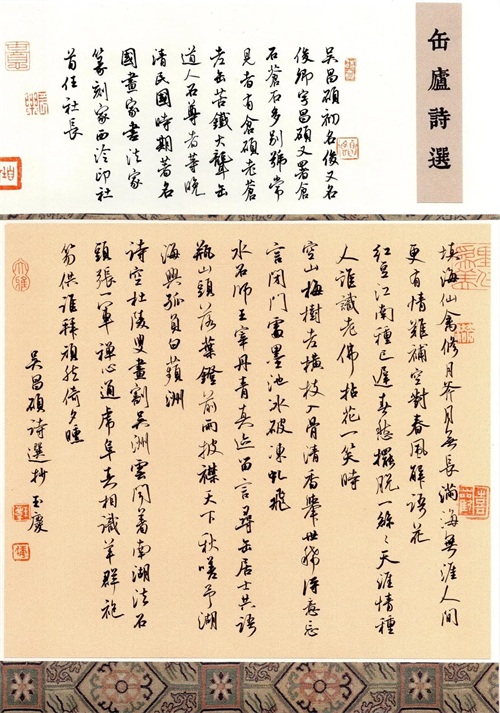 缶廬詩選
吳昌碩初名俊又名
俊卿字昌碩又署倉
石蒼石多别號常
見者有倉碩老蒼
老缶苦鐵大聾缶
道人石尊者等晚
清民國時期著名
國畫家書法家
篆刻家西泠印社
首任社長
填海仙禽修月斧月無長滿海無涯人間
更有情難補空對春風解語花
紅豆江南種已遲春愁擺脱一絲々天涯情種
人誰識老佛拈花一笑時
空山梅樹老横枝入骨清香舉世稀得意忘
言閉門處墨池冰破凍虬飛
水石師王宰丹青真迹留言尋缶居士共語
瓶山頭落葉鐙前雨披襟天下秋嗟予湖
海興孤負白蘋洲
詩空杜陵叟畫割吳洲雲閑著南湖法石
頭張一軍禪心通虎阜真相識羊群袍
笏供誰拜頑然倚夕曛
吳昌碩詩選抄玉慶